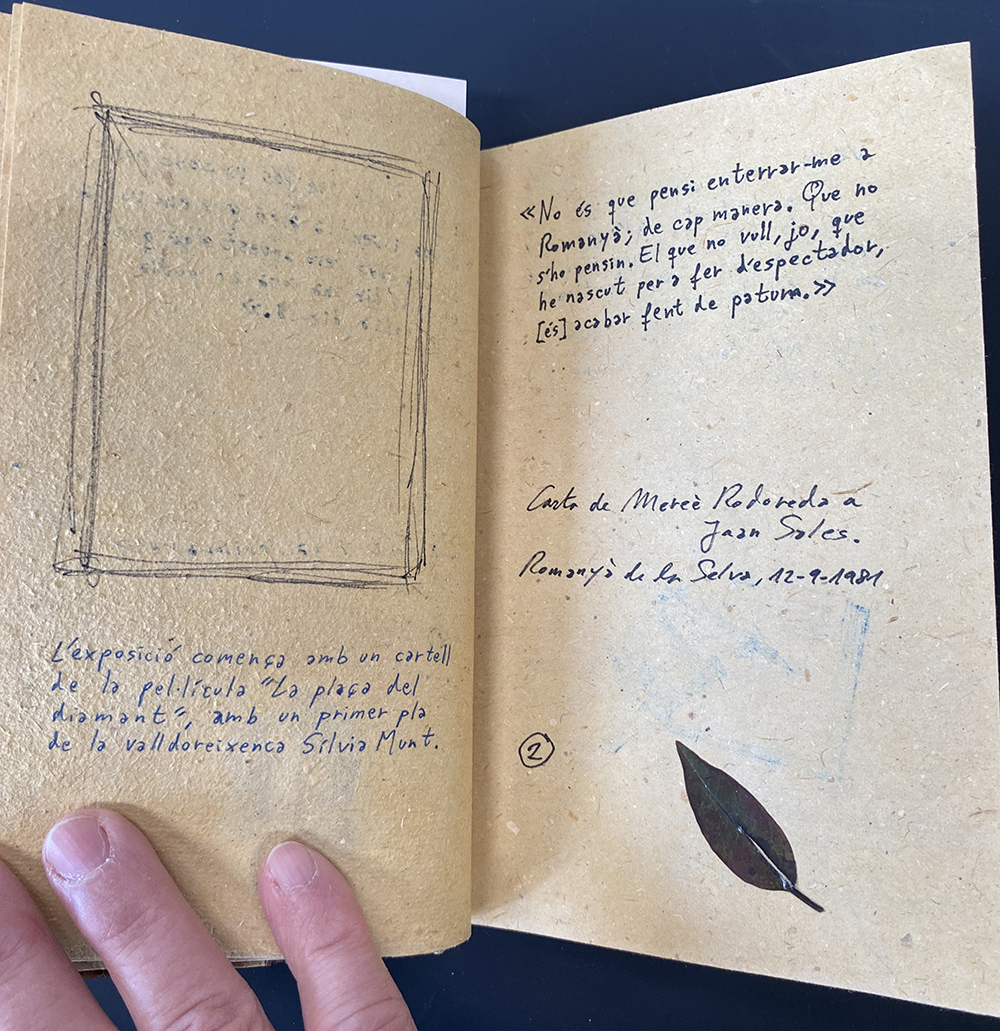 L'exposició comença amb un cartell
de la pel·lícula "La plaça del
diamant", amb un primer pla
de la valldoreixenca Sílvia Munt.
«No és que pensi enterrar-me a
Romanyà; de cap manera. Que no
s'ho pensin. El que no vull, jo, que
he nascut per a fer d'espectador,
[és] acabar fent de patum.»
Carta de Mercè Rodoreda a
Joan Sales.
Romanyà de la Selva, 12-9-1981
2